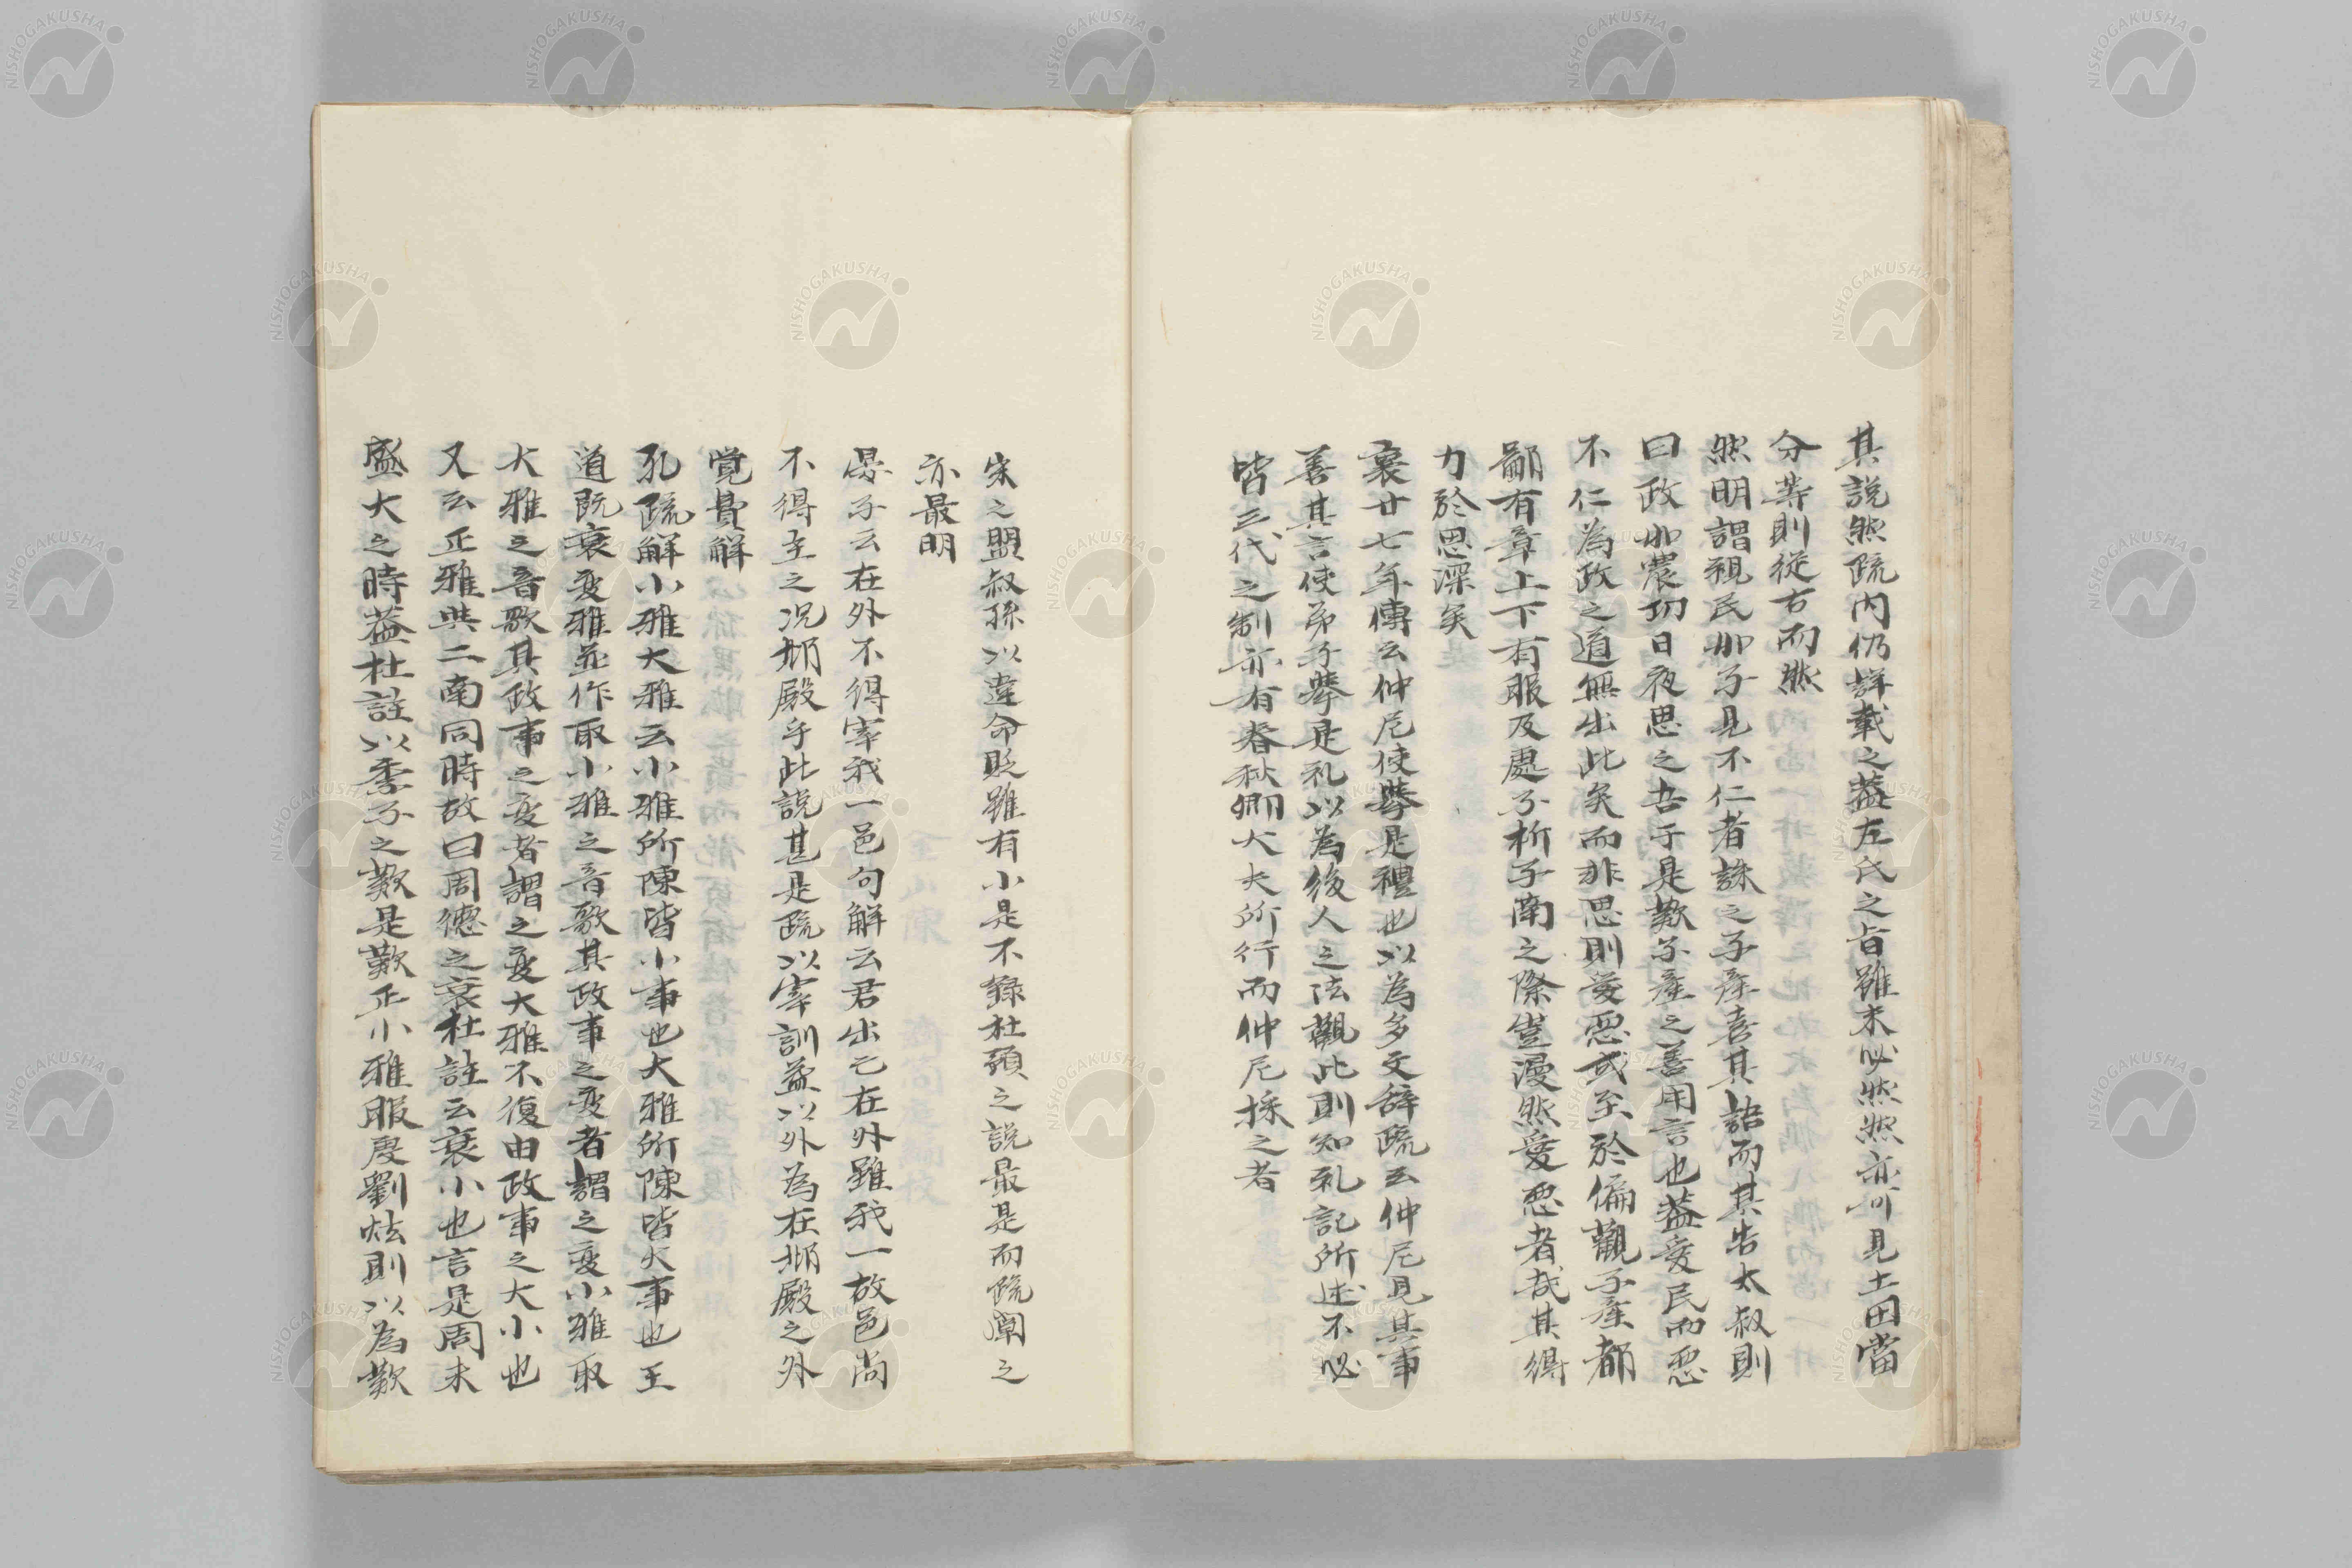 其説然疏内仍詳載之蓋左氏之旨雖未必然然亦可見土田當
分等則從古而然
然明謂視民如子見不仁者誅之子産喜其語而其告太叔則
曰政如農功日夜思之吾于是歎子産之善用言也蓋愛民而惡
不仁為政之道無出此矣而非思則愛惡或至於偏觀子産都
鄙有章上下有服及處子析子南之際豈漫然愛惡者哉其得
力於思深矣
襄廿七年傳云仲尼使舉是禮也以為多文辞疏云仲尼見其事
善其言使弟子舉是礼以為後人之法觀此則知礼記所述不必
皆三代之制亦有春秋卿大夫所行而仲尼採之者
宋之盟叔孫以違命貶雖有小是不録杜預之説最是而疏闡之
亦最明
晏子云在外不得宰我一邑句解云君出亡在外雖我一故邑尚
不得主之况邶殿乎此説甚是疏以宰訓益以外為在邶殿之外
覺費解
孔疏解小雅大雅云小雅所陳皆小事也大雅所陳皆大事也王
道既衰变雅並作取小雅之音歌其政事之变者謂之变小雅取
大雅之音歌其政事之变者謂之变大雅不復由政事之大小也
又云正雅與二南同時故曰周德之衰杜註云衰小也言是周未
盛大之時蓋杜註以季子之歎是歎正小雅服虔劉炫則以為歎